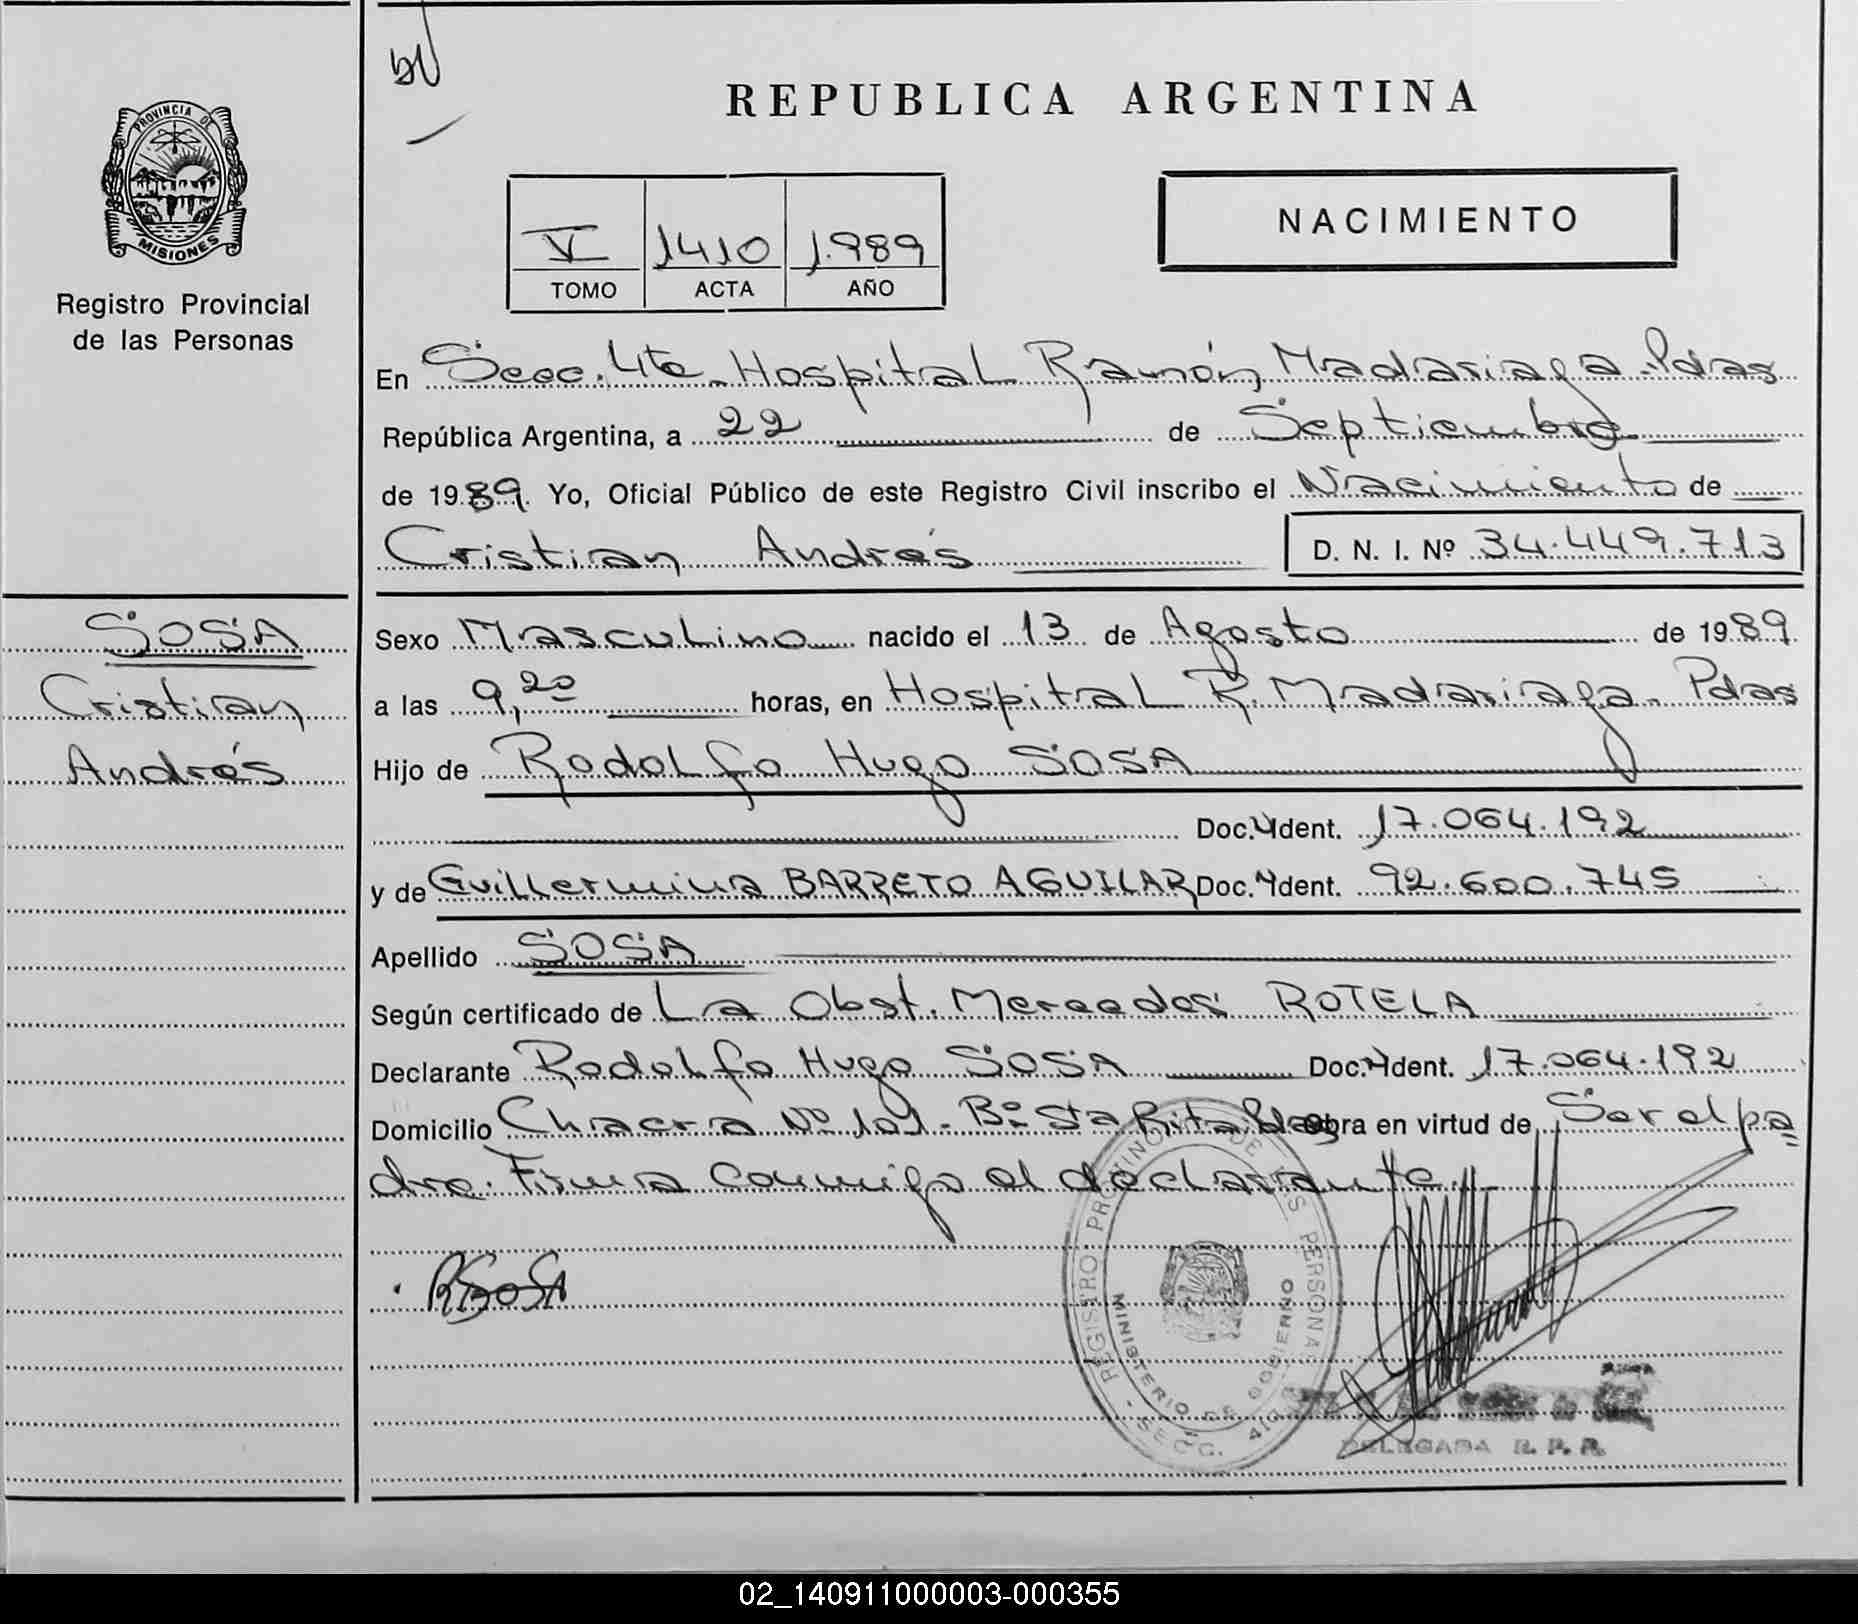 REPUBLICA ARGENTINA
PROVINCIA DE
MISIONES
Registro Provincial
de las Personas
NACIMIENTO
V 1410 1.989
TOMO ACTA AÑO
En Secc. 4ta Hospital Ramón Madariaga. Pdas
República Argentina, a 22 de Septiembre
de 1989. Yo, Oficial Público de este Registro Civil inscribo el Nacimiento de
Cristian Andrés D. N. I. Nº 34.449.713
SOSA
Cristian
Andrés
Sexo Masculino nacido el 13 de Agosto de 1989
a las 9,20 horas, en Hospital R. Madariaga. Pdas
Hijo de Rodolfo Hugo SOSA
Doc. Ident. 17.064.192
y de Guillermina BARRETO AGUILAR Doc. Ident. 92.600.745
Apellido SOSA
Según certificado de La Obst. Mercedes ROTELA
Declarante Rodolfo Hugo SOSA Doc. Ident. 17.064.192
Domicilio Chacra Nº 101. Bº Sta Rita Pdas obra en virtud de Ser el pa
dre. Firma conmigo el declarante.
R SOSA
REGISTRO PROVINCIAL DE LAS PERSONAS
MINISTERIO DE GOBIERNO
SECC. 4ta
DELEGADA R. P. P.
02_140911000003-000355